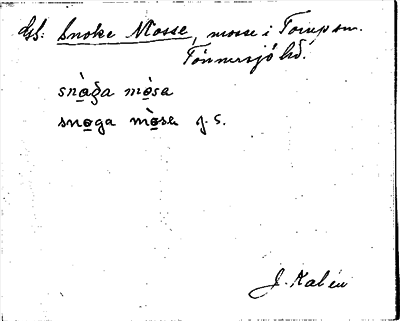 Gsk: Snoke Mosse, mosse i Torup sn.
Tönnersjö hd.
snòga mòsa
snoga mòsa g. s.
J. Kalén